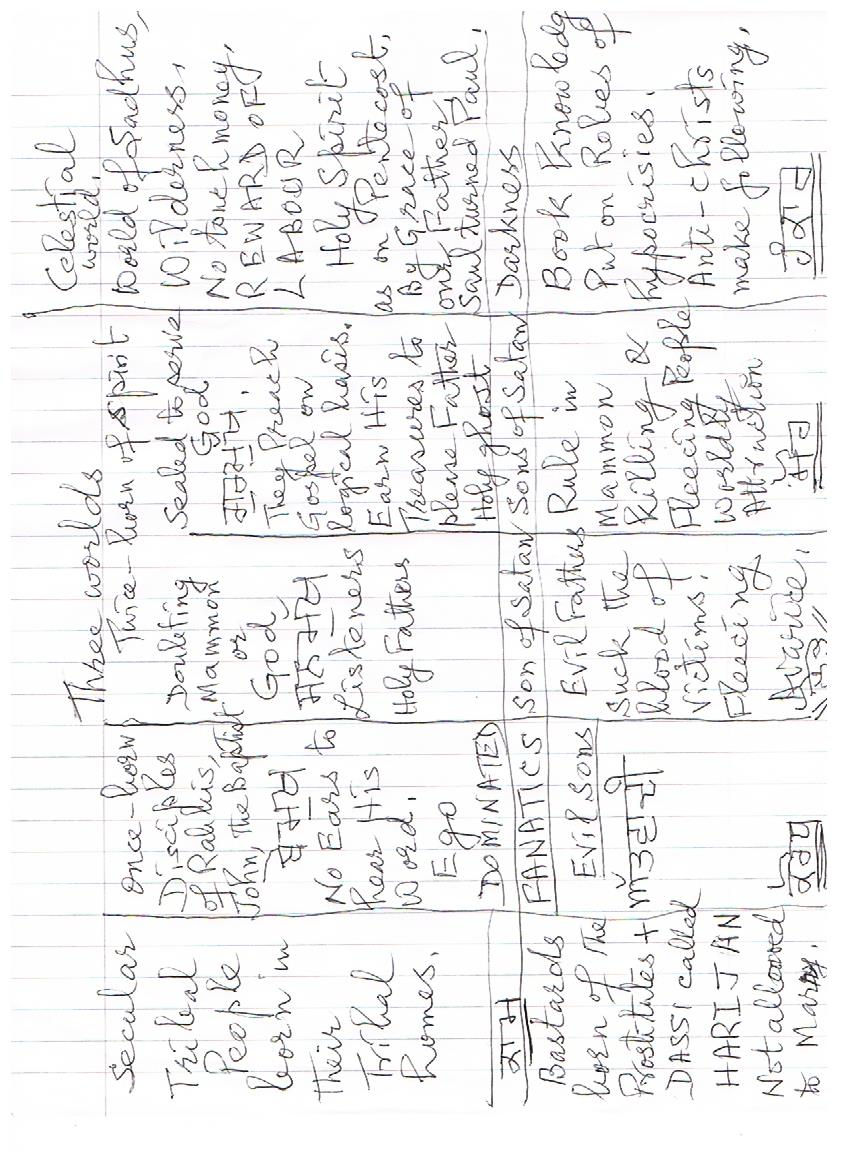 Three worlds
Secular
Tribal
People
born in
Their
Tribal
homes.
ਕਾਮ
Bastards
born of the
Prostitutes +
DASSI called
HARIJAN
Not allowed
to Marry.
once-born
Disciples
of Rabbis,
John, The Baptist
ਬੇਮੁਖ
No Ears to
hear His
Word.
Ego
DOMINATED
FANATICS
Evil sons
Twice-born of spirit
Doubting
Mammon
or
God
ਮਨਮੁਖ
Listeners
Holy Fathers
Son of Satan
Evil Fathers
Suck the
blood of
Victims.
Fleecing
Avarice.
Sealed to serve
God
They Preach
Gospel on
logical basis.
Earn His
Treasures to
please Father
Holy ghost
Sons of Satan
Rule in
Mammon
Killing &
Fleecing People
Worldly
Attraction
ਮੋਹ
Celestial
world.
World of Sadhus,
Wilderness.
No touch money.
REWARD OF
LABOUR
Holy Spirit
as on Pentecost.
By Grace of
our Father
Saul turned Paul.
Darkness
Book Knowledg
Put on Robes of
hypocrisies.
Anti-christs
make following.
ਹੰਕਾਰ